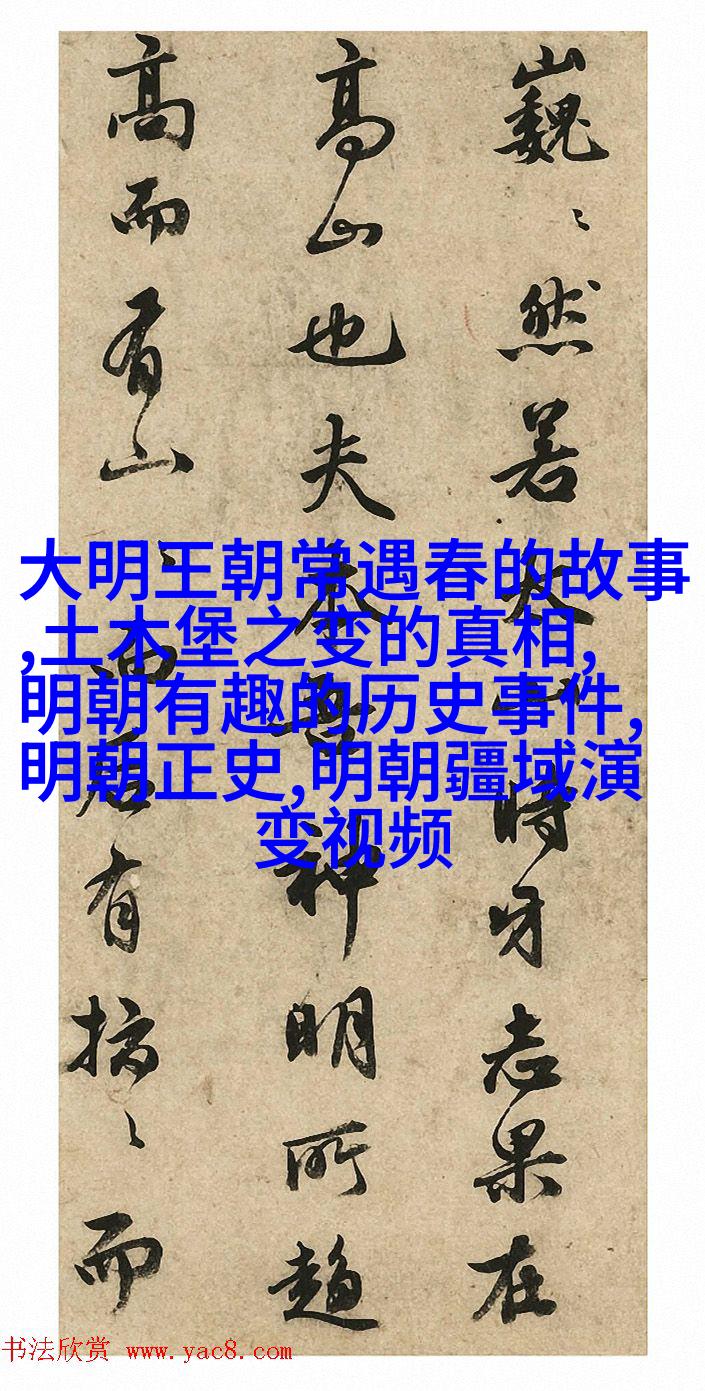 巍〻然若太山時牙志果在
高山也夫本神明所趨
高而有山有而
大明王朝常遇春的故事
,土木堡之变的真相,
明朝有趣的历史事件,
明朝正史,明朝疆域演
变视频
书法欣赏 www.yac8.com